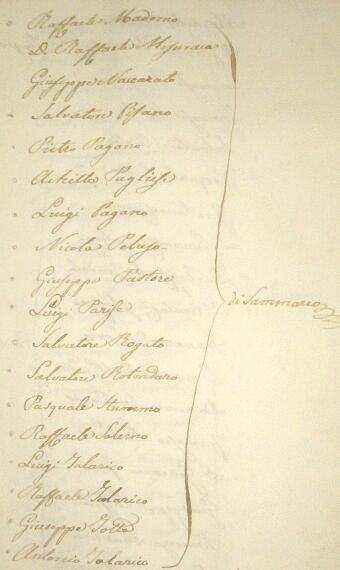 Raffaele Madorno
D. Raffaele Misuraca
Giuseppe Naccarato
Salvatore Pisano
Pietro Pagano
Achille Pugliese
Luigi Pagano
Nicola Peluso
Giuseppe Pastore
Luigi Parise
di Sammarco
Salvatore Rogato
Salvatore Rotondaro
Pasquale Stummo
Raffaele Salerno
Luigi Talarico
Raffaele Talarico
Giuseppe Totta
Antonio Talarico